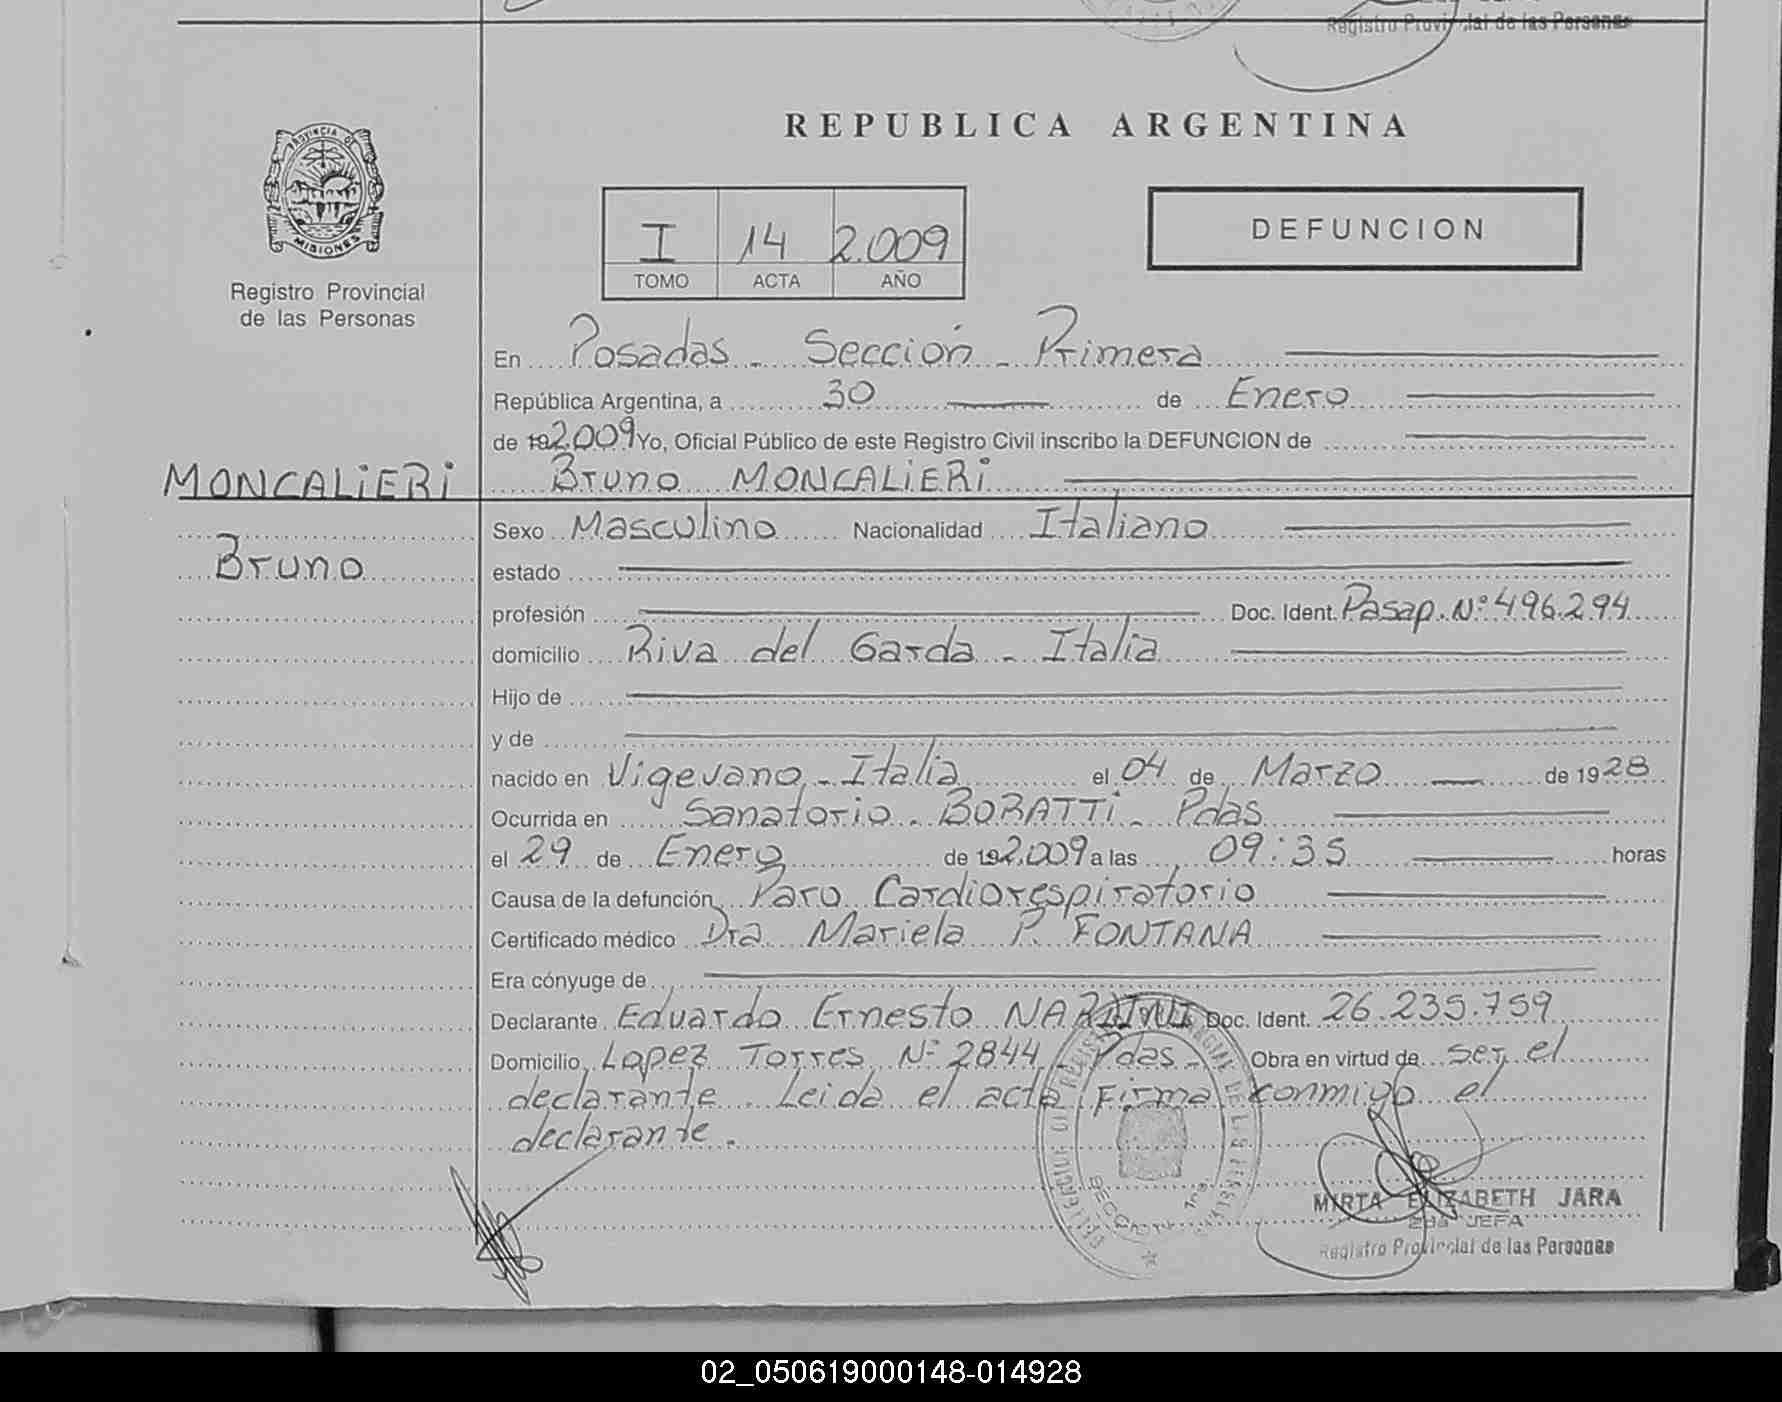 Registro Provincial de las Personas
PROVINCIA DE
MISIONES
Registro Provincial
de las Personas
REPUBLICA ARGENTINA
I 14 2.009
TOMO ACTA AÑO
DEFUNCION
En Posadas - Sección - Primera
República Argentina, a 30 de Enero
de 192.009 Yo, Oficial Público de este Registro Civil inscribo la DEFUNCION de
MONCALIERI
Bruno
Bruno MONCALIERI
Sexo Masculino Nacionalidad Italiano
estado
profesión Doc. Ident. Pasap. Nº 496.294
domicilio Riva del Garda - Italia
Hijo de
y de
nacido en Vigevano - Italia el 04 de Marzo de 1928
Ocurrida en Sanatorio - BORATTI - Pdas
el 29 de Enero de 192.009 a las 09:35 horas
Causa de la defunción Paro Cardiorespiratorio
Certificado médico Dra Mariela P. FONTANA
Era cónyuge de
Declarante Eduardo Ernesto Doc. Ident. 26.235.759
Domicilio Lopez Torres Nº 2844 Pdas - Obra en virtud de ser el
declarante - Leida el acta Firma conmigo el
declarante.
MIRTA ELIZABETH JARA
2da JEFA
Registro Provincial de las Personas
02_050619000148-014928